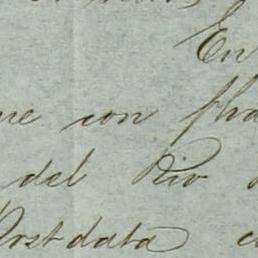 En
ue con fha
del Rio
Postdata c